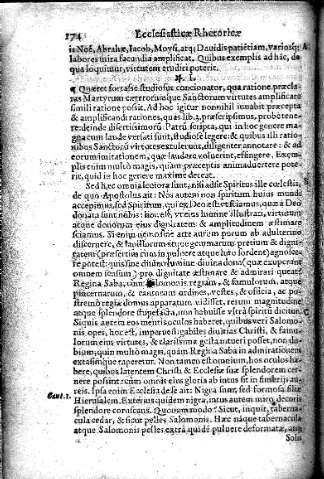 174 Ecclesiasticæ Rhetoricæ
is Noë, Abrahæ, Iacob, Moysi, atq; Dauidis patiētiam, varios
labores mira facundia amplificat. Quibus exemplis ad hāc, de
qua loquimur, virtutem erudiri poterit.
I.
¶ Quæret forsasse studiosus concionator, qua ratione præcla-
ras Martyrum cæterorumque Sanctorum virtutes amplificare
simili ratione possit. Ad hoc igitur nonnihil iuuabit præcepta
& amplificandi rationes, quas lib.3. præscripsimus, probe tene-
re: deinde disertissimoru Patru scripta, qui in hoc genere magna
cum laude versati sunt, studiose legere: & quibus illi ratio-
nibus Sanctorū virtutes extulerunt, diligenter annotare: & ad
eorum imitationem, quæ laudare voluerint, effingere. Exem-
plis enim multo magis, quàm præceptis animaduertere pote-
rit, quid in hoc genere maxime deceat.
Sed hæc omnia leuiora sunt, nisi adsit Spiritus ille cœlestis,
de quo Apostolus ait: Nos autem non spiritum huius mundi
accepimus, sed Spiritum, qui ex Deo est: vt sciamus, quæ à Deo
donata sunt nobis: hoc est, vt eius lumine illustrati, virtutum
atque donorum eius dignitatem & amplitudinem æstimare
sciamus. Si enim non sine arte aurum porum ab adulterino
discernere, & fusilorum atque gemmarum pretium & digni-
tatem (præsertim cùm in puluere atque luto sordent) agnosce-
re potest: quis sine diuino lumine diuina dona (quæ exuperant
omnem sensum) pro dignitate æstimare & admirari queat?
Regina Saba, cùm Salomonis regiam, & famulorum, atque
pincernarum, & cantorum ordines, vestes, & officia, ac po-
stremò regiæ domus apparatum vidisset, rerum magnitudine
atque splendore stupefacta, non habuisse vltrà spiritū dicitur.
Siquis autem eos mentis oculos haberet, quibus veri Salomo-
nis opes, hoc est, imperuestigabiles diuitias Christi, & famu-
lorum eius virtutes, & clarissima gesta intueri posset, non du-
bium, quin multò magis, quàm Regina Saba in admirationem
extasimque raperetur. Non tamen est omnium, hos oculos ha-
bere, quibus latentem Christi & Ecclesiæ suæ splendorem cer-
nere possint: cùm omnis eius gloria ab intus sit in fimbrijs au-
reis. Ipsa enim Ecclesia de se ait: Nigra sum, sed formosa filiæ
Cant.1. Hierusalem. Exterius quidem nigra, intus autem miro decoris
splendore corusca ns. Quonam modo? Sicut, inquit, taberna-
cula cedar, & sicut pelles Salomonis. Hæc náque tabernacula
atque Salomonis pelles extrà quidē puluere deformatæ, atq;
Solis